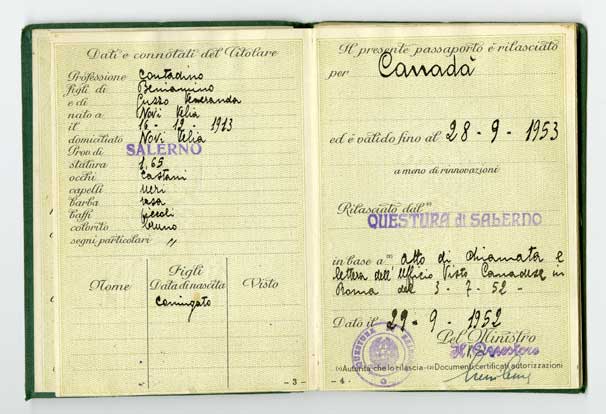 Dati e connotati del Titolare
Professione Contadino
figli di Beniamino
e di Guzzo Veneranda
nato a Novi Velia
il 16 - 12 - 1913
domiciliato Novi Velia
Prov di SALERNO
statura 1,65
occhi castani
capelli neri
barba rasa
baffi piccoli
colorito bruno
segni particolari "
Figli
Nome Data di nascita Visto
Coniugato
- 3 -
Il presente passaporto è rilasciato
per Cannadà
ed è valido fino al 28 - 9 - 1953
a meno di rinnovazioni
Rilasciato dal
QUESTURA di SALERNO
in base a atto di chiamata e
lettera dell' Ufficio Visto Canadese in
Roma del 3 - 7 - 52 -
Dato il 29 - 9 - 1952
Pel Ministro
Il Questore
QUESTURA
(1) Autorità che lo rilascia - (2) Documenti certificati autorizzazioni
- 4 -